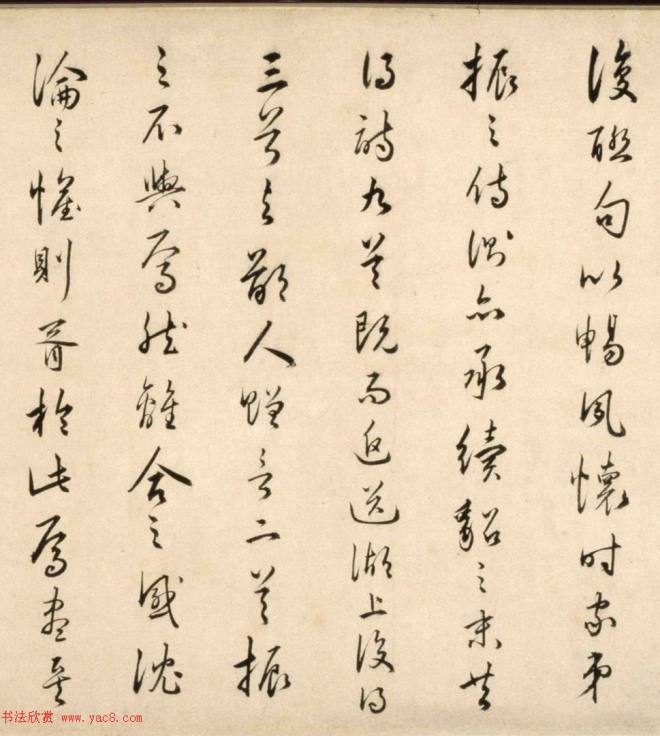 復聯句以暢夙懷时家弟
振之侍側亦承續貂之末共
得詩九首既而返送湖上復得
三首與鄙人贈言二首振
之不與焉然離合之感沈
淪之懽則胥於此焉盡矣
书法欣赏 www.yac8.com